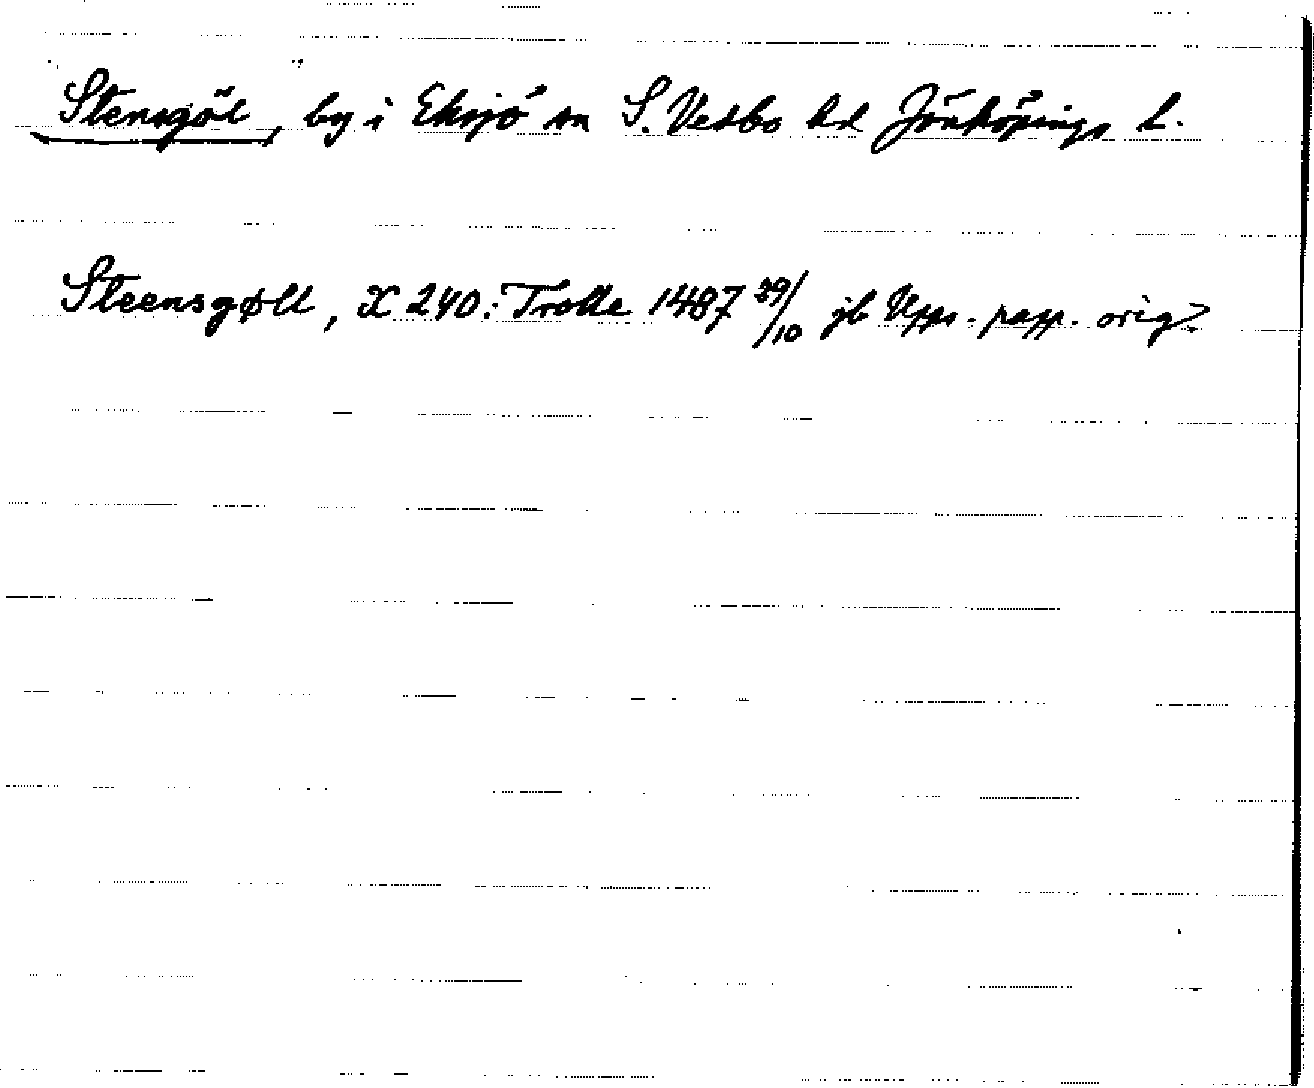 Stensgöl, by i Eksjö sn S. Vedbo hd Jönköpings l.
Steensgøll, X 240: Trolle 1487 29/10 jb Upps. papp. orig.